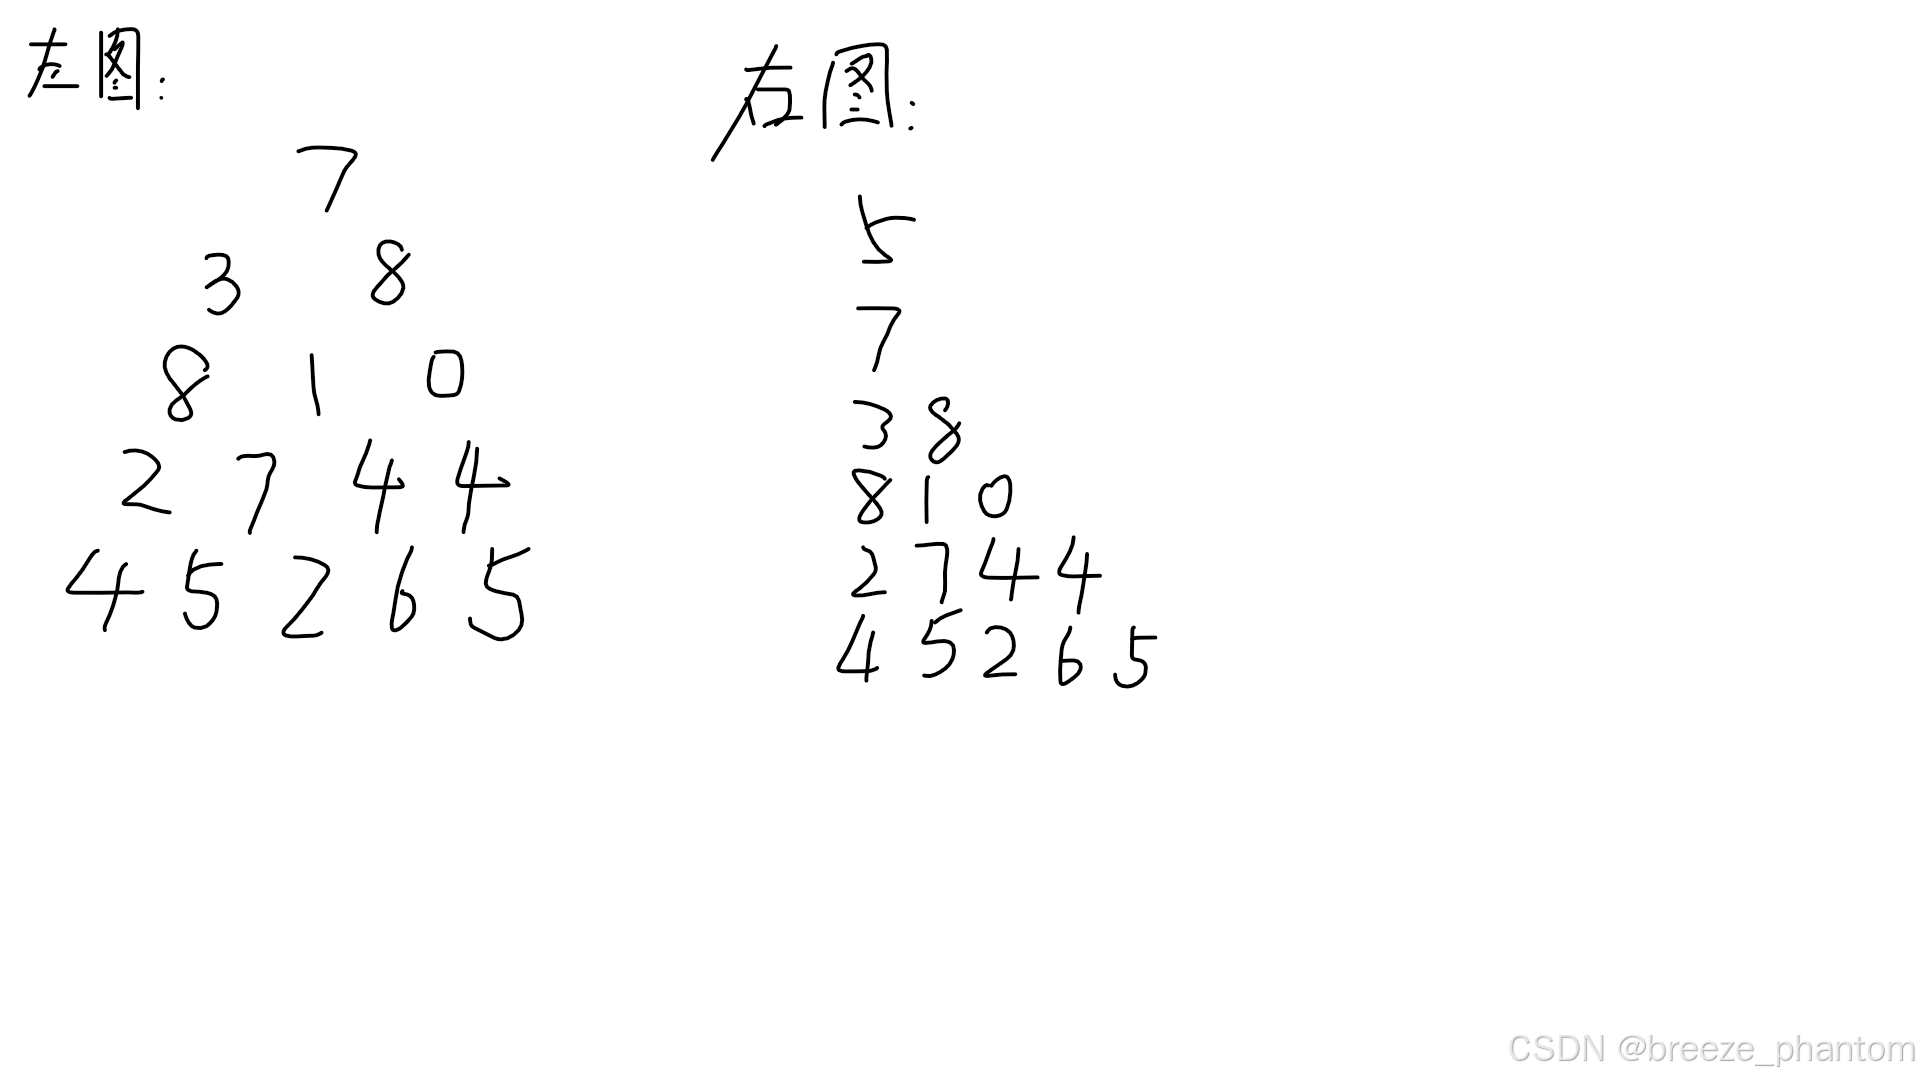 左图:
7
3 8
8 1 0
2 7 4 4
4 5 2 6 5
右图:
5
7
3 8
8 1 0
2 7 4 4
4 5 2 6 5
CSDN @breeze_phantom